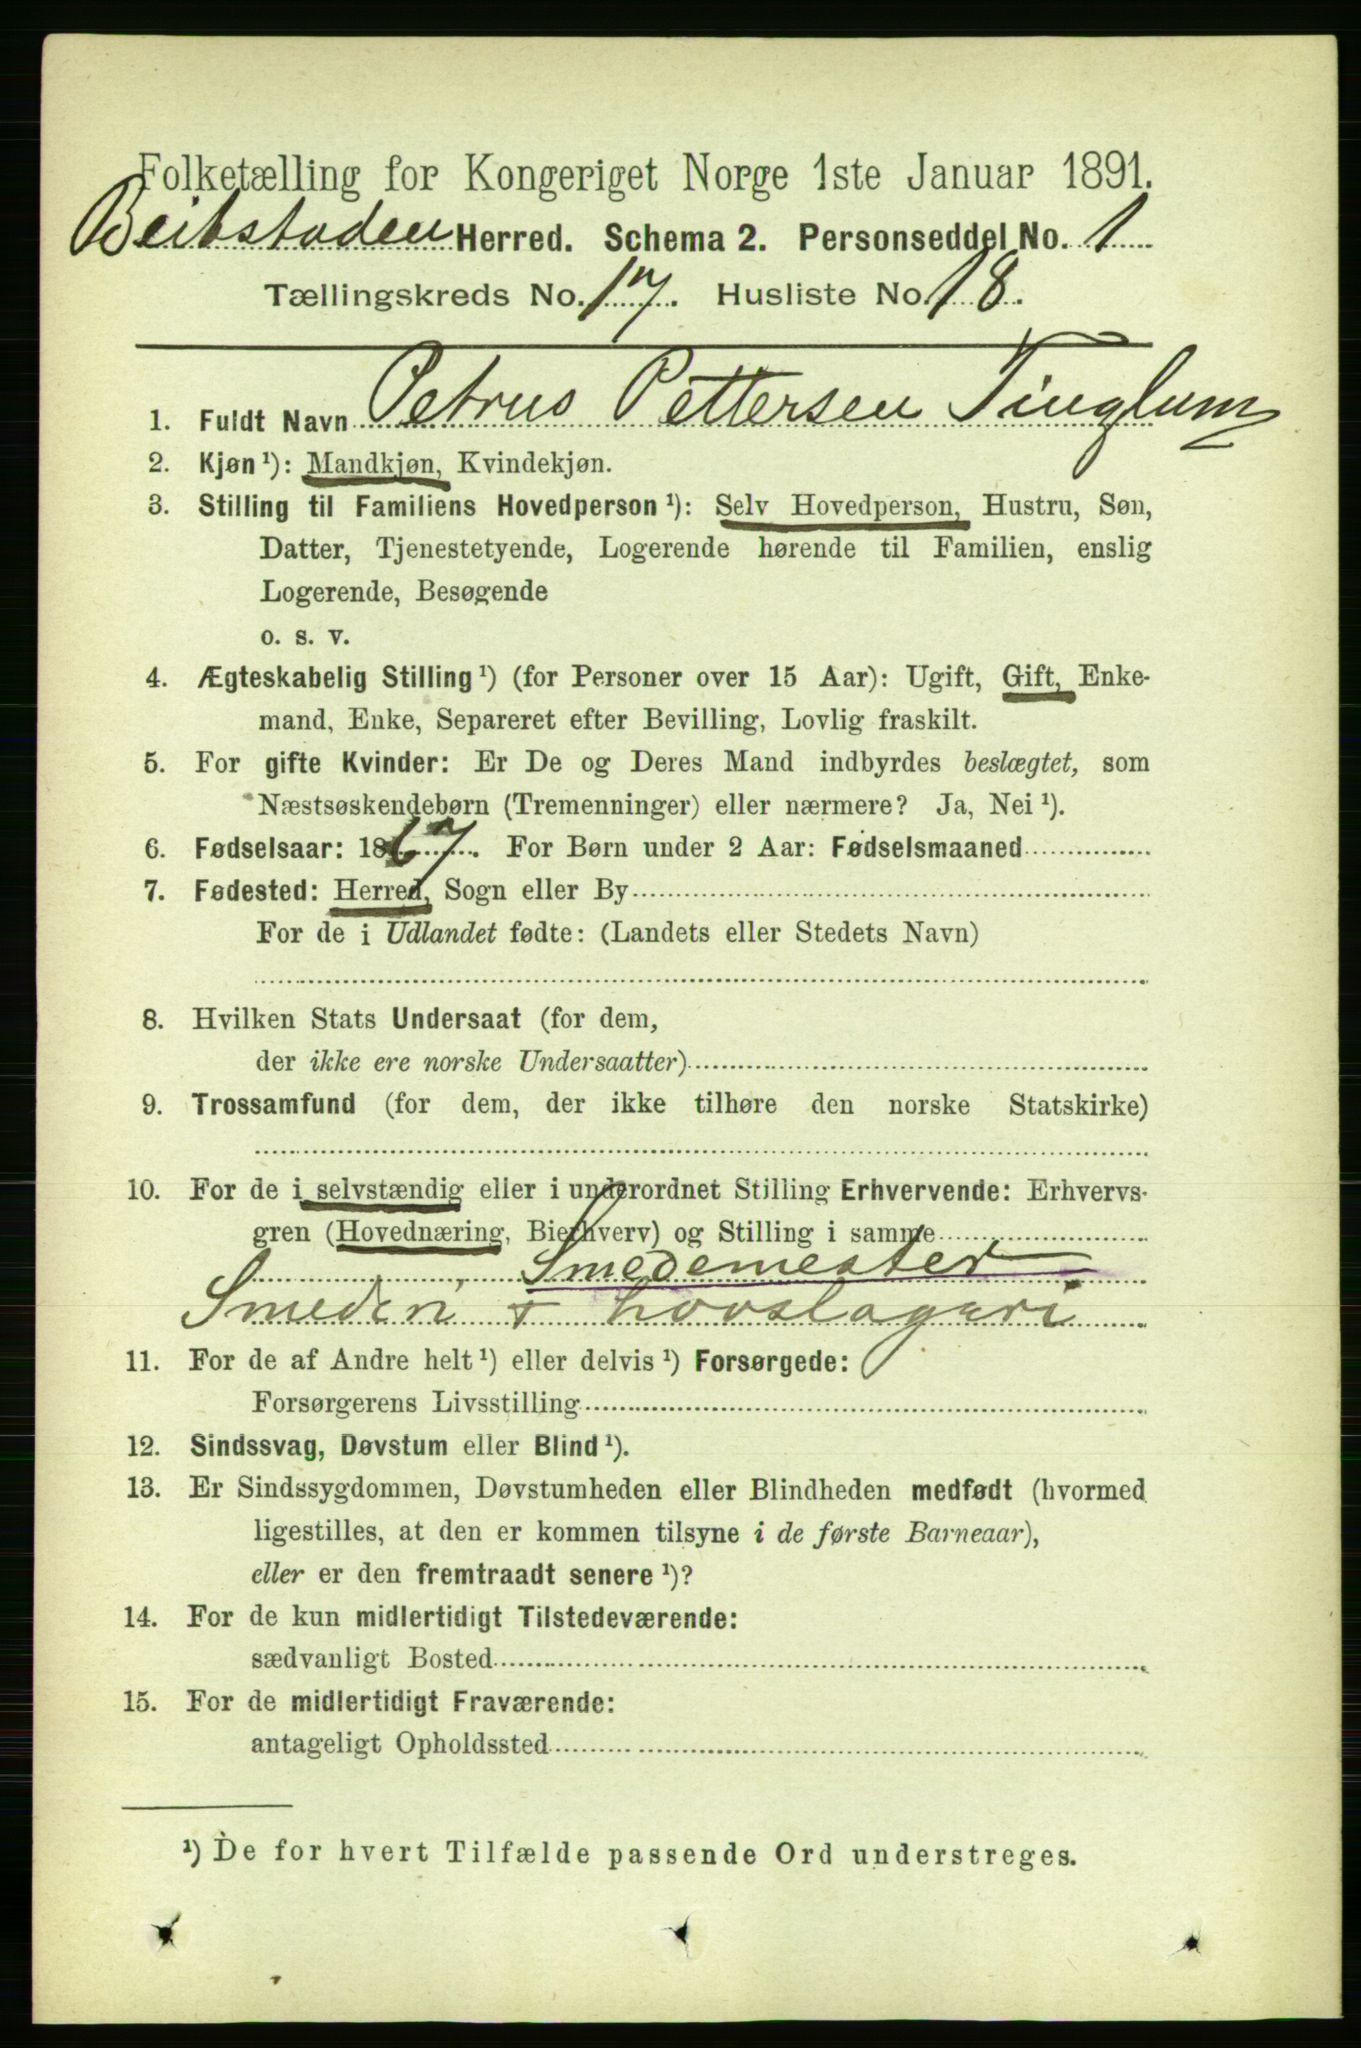 Folketælling for Kongeriget Norge 1ste Januar 1891.
Beitstaden Herred. Schema 2. Personseddel No. 1
Tællingskreds No. 17. Husliste No. 18.
1. Fuldt Navn Petrus Pettersen Tinglum
2. Kjøn ¹): Mandkjøn, Kvindekjøn.
3. Stilling til Familiens Hovedperson ¹): Selv Hovedperson, Hustru, Søn,
Datter, Tjenestetyende, Logerende hørende til Familien, enslig
Logerende, Besøgende
o. s. v.
4. Ægteskabelig Stilling ¹) (for Personer over 15 Aar): Ugift, Gift, Enke-
mand, Enke, Separeret efter Bevilling, Lovlig fraskilt.
5. For gifte Kvinder: Er De og Deres Mand indbyrdes beslægtet, som
Næstsøskendebørn (Tremenninger) eller nærmere? Ja, Nei ¹).
6. Fødselsaar: 1867. For Børn under 2 Aar: Fødselsmaaned
7. Fødested: Herred, Sogn eller By
For de i Udlandet fødte: (Landets eller Stedets Navn)
8. Hvilken Stats Undersaat (for dem,
der ikke ere norske Undersaatter)
9. Trossamfund (for dem, der ikke tilhøre den norske Statskirke)
10. For de i selvstændig eller i underordnet Stilling Erhvervende: Erhvervs-
gren (Hovednæring, Bierhverv) og Stilling i samme
Smedemester
Smederi + hovslageri
11. For de af Andre helt ¹) eller delvis ¹) Forsørgede:
Forsørgerens Livsstilling
12. Sindssvag, Døvstum eller Blind ¹).
13. Er Sindssygdommen, Døvstumheden eller Blindheden medfødt (hvormed
ligestilles, at den er kommen tilsyne i de første Barneaar),
eller er den fremtraadt senere ¹)?
14. For de kun midlertidigt Tilstedeværende:
sædvanligt Bosted
15. For de midlertidigt Fraværende:
antageligt Opholdssted
¹) De for hvert Tilfælde passende Ord understreges.